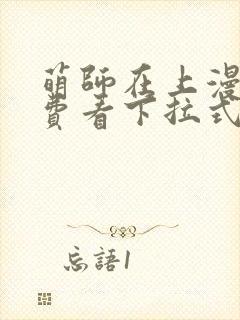 萌師在上漫
費看下拉式
忘語1